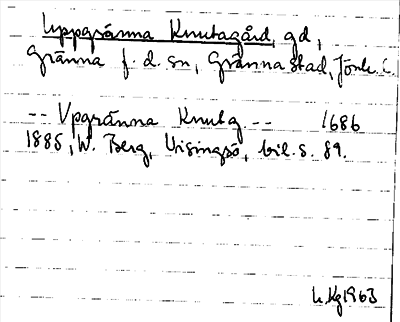 Uppgränna Knutagård, gd,
Gränna f. d. sn, Gränna stad, Jönk. l.
-- Vpgränna Knutg -- 1686
1885, W. Berg, Visingsö, bil. s. 89.
1963